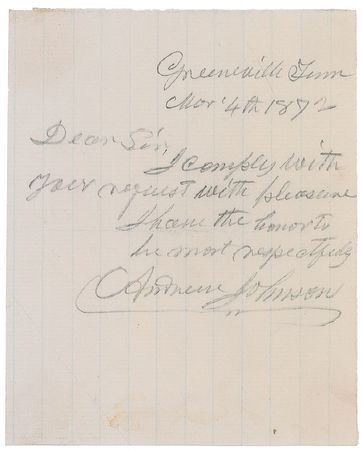 Greeneville Tenn
Mar 4th 1872
Dear Sir,
I comply with
your request with pleasure
I have the honor to
be most respectfully
Andrew Johnson